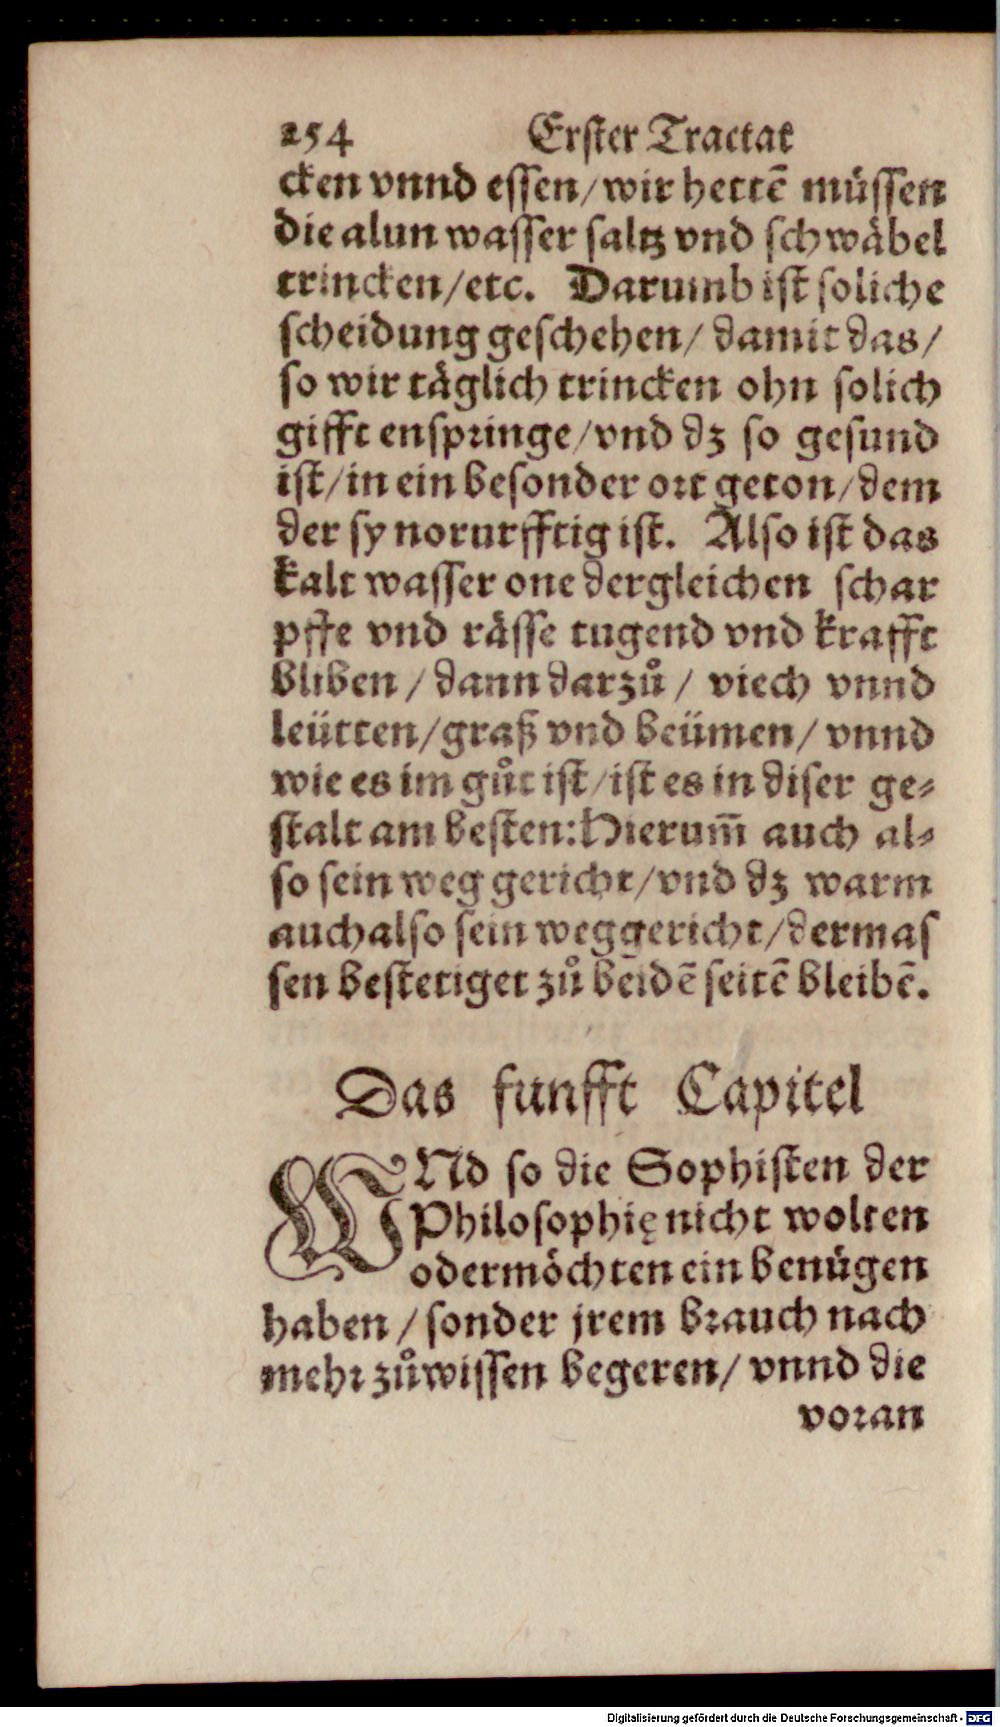 254 Erster Tractat
cken vnnd essen/wir hettē müssen
die alun wasser saltz vnd schwäbel
trincken/etc. Darumb ist soliche
scheidung geschehen/ damit das/
so wir täglich trincken ohn solich
gifft enspringe/vnd dz so gesund
ist/in ein besonder ort geton/dem
der sy noturfftig ist. Also ist das
kalt wasser one dergleichen schar
pffe vnd rässe tugend vnd krafft
bliben/dann darzů/ viech vnnd
leütten/graß vnd beümen/ vnnd
wie es im gůt ist/ist es in diser ge⸗
stalt am besten:Hierum̄ auch al⸗
so sein weg gericht/vnd dz warm
auch also sein weg gericht/dermas
sen bestetiget zů beidē seitē bleibē.
Das funfft Capitel
WNd so die Sophisten der
Philosophię nicht wolten
oder möchten ein benügen
haben/sonder jrem brauch nach
mehr zůwissen begeren/ vnnd die
voran
Digitalisierung gefördert durch die Deutsche Forschungsgemeinschaft - DFG